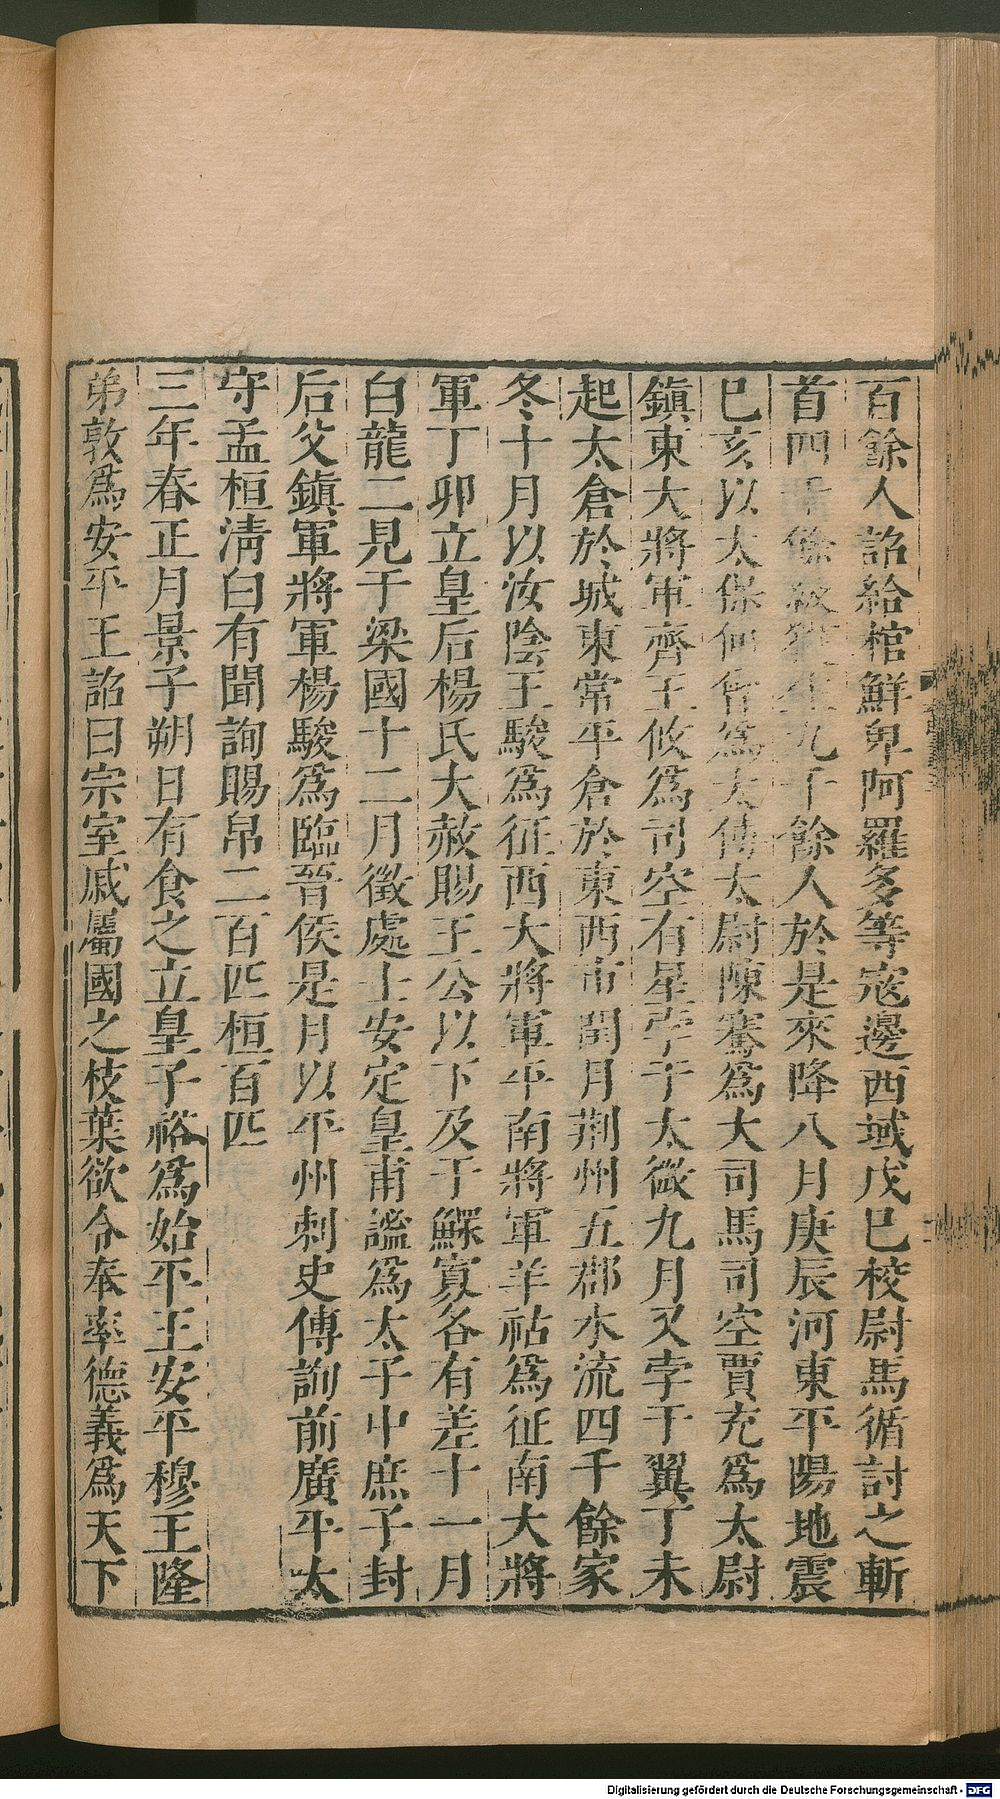 百餘人詔給棺鮮卑阿羅多等寇邊西域戊巳校尉馬循討之斬
首四千餘級獲生九千餘人於是來降八月庚辰河東平陽地震
巳亥以太保何曾爲太傅太尉陳騫爲大司馬司空賈充爲太尉
鎮東大將軍齊王攸爲司空有星孛于太微九月又孛于翼丁未
起太倉於城東常平倉於東西市閏月荆州五郡水流四千餘家
冬十月以汝陰王駿爲征西大將軍平南將軍羊祜爲征南大將
軍丁卯立皇后楊氏大赦賜王公以下及于鰥寡各有差十一月
白龍二見于梁國十二月徵處士安定皇甫謐爲太子中庶子封
后父鎮軍將軍楊駿爲臨晉侯是月以平州刺史傅詢前廣平太
守孟桓淸白有聞詢賜帛二百匹桓百匹
三年春正月景子朔日有食之立皇子裕爲始平王安平穆王隆
弟敦爲安平王詔曰宗室戚屬國之枝葉欲令奉率德義爲天下
Digitalisierung gefördert durch die Deutsche Forschungsgemeinschaft - DFG